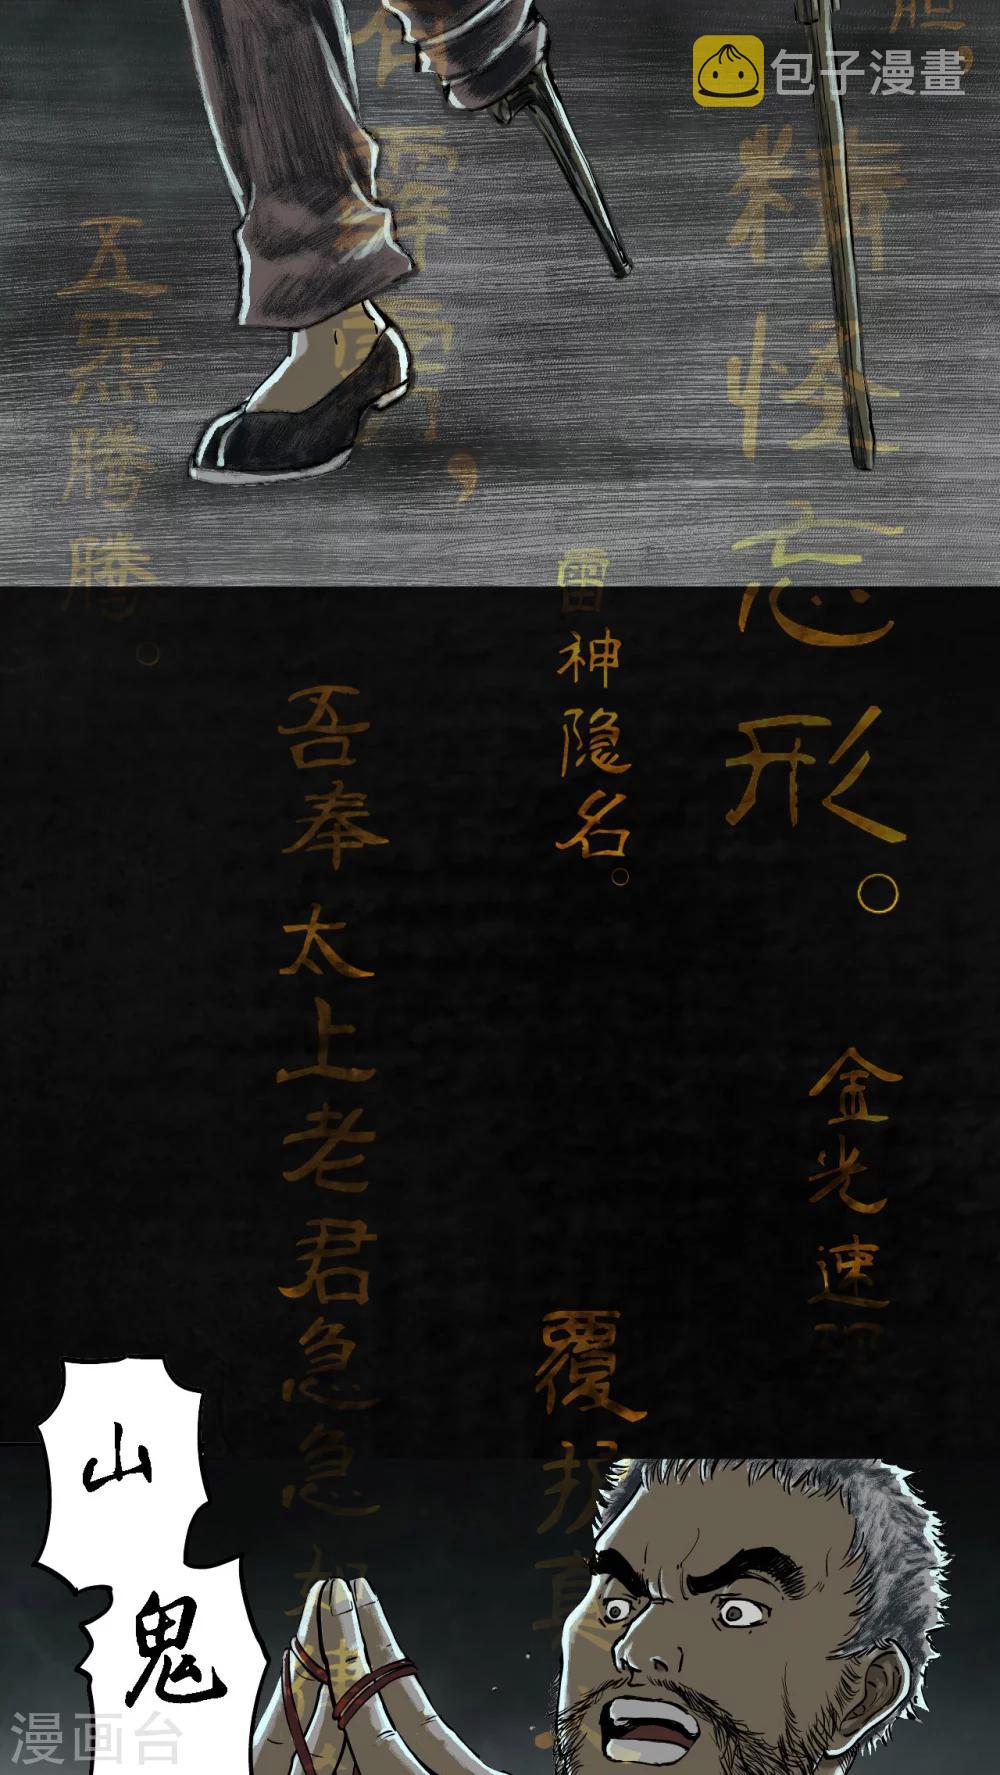 包子漫畫
胆。
精怪忘形。
霹雳，
五炁腾腾。
雷神隐名。
吾奉太上老君急急如律
金光速现
覆护真人
山鬼
漫画台